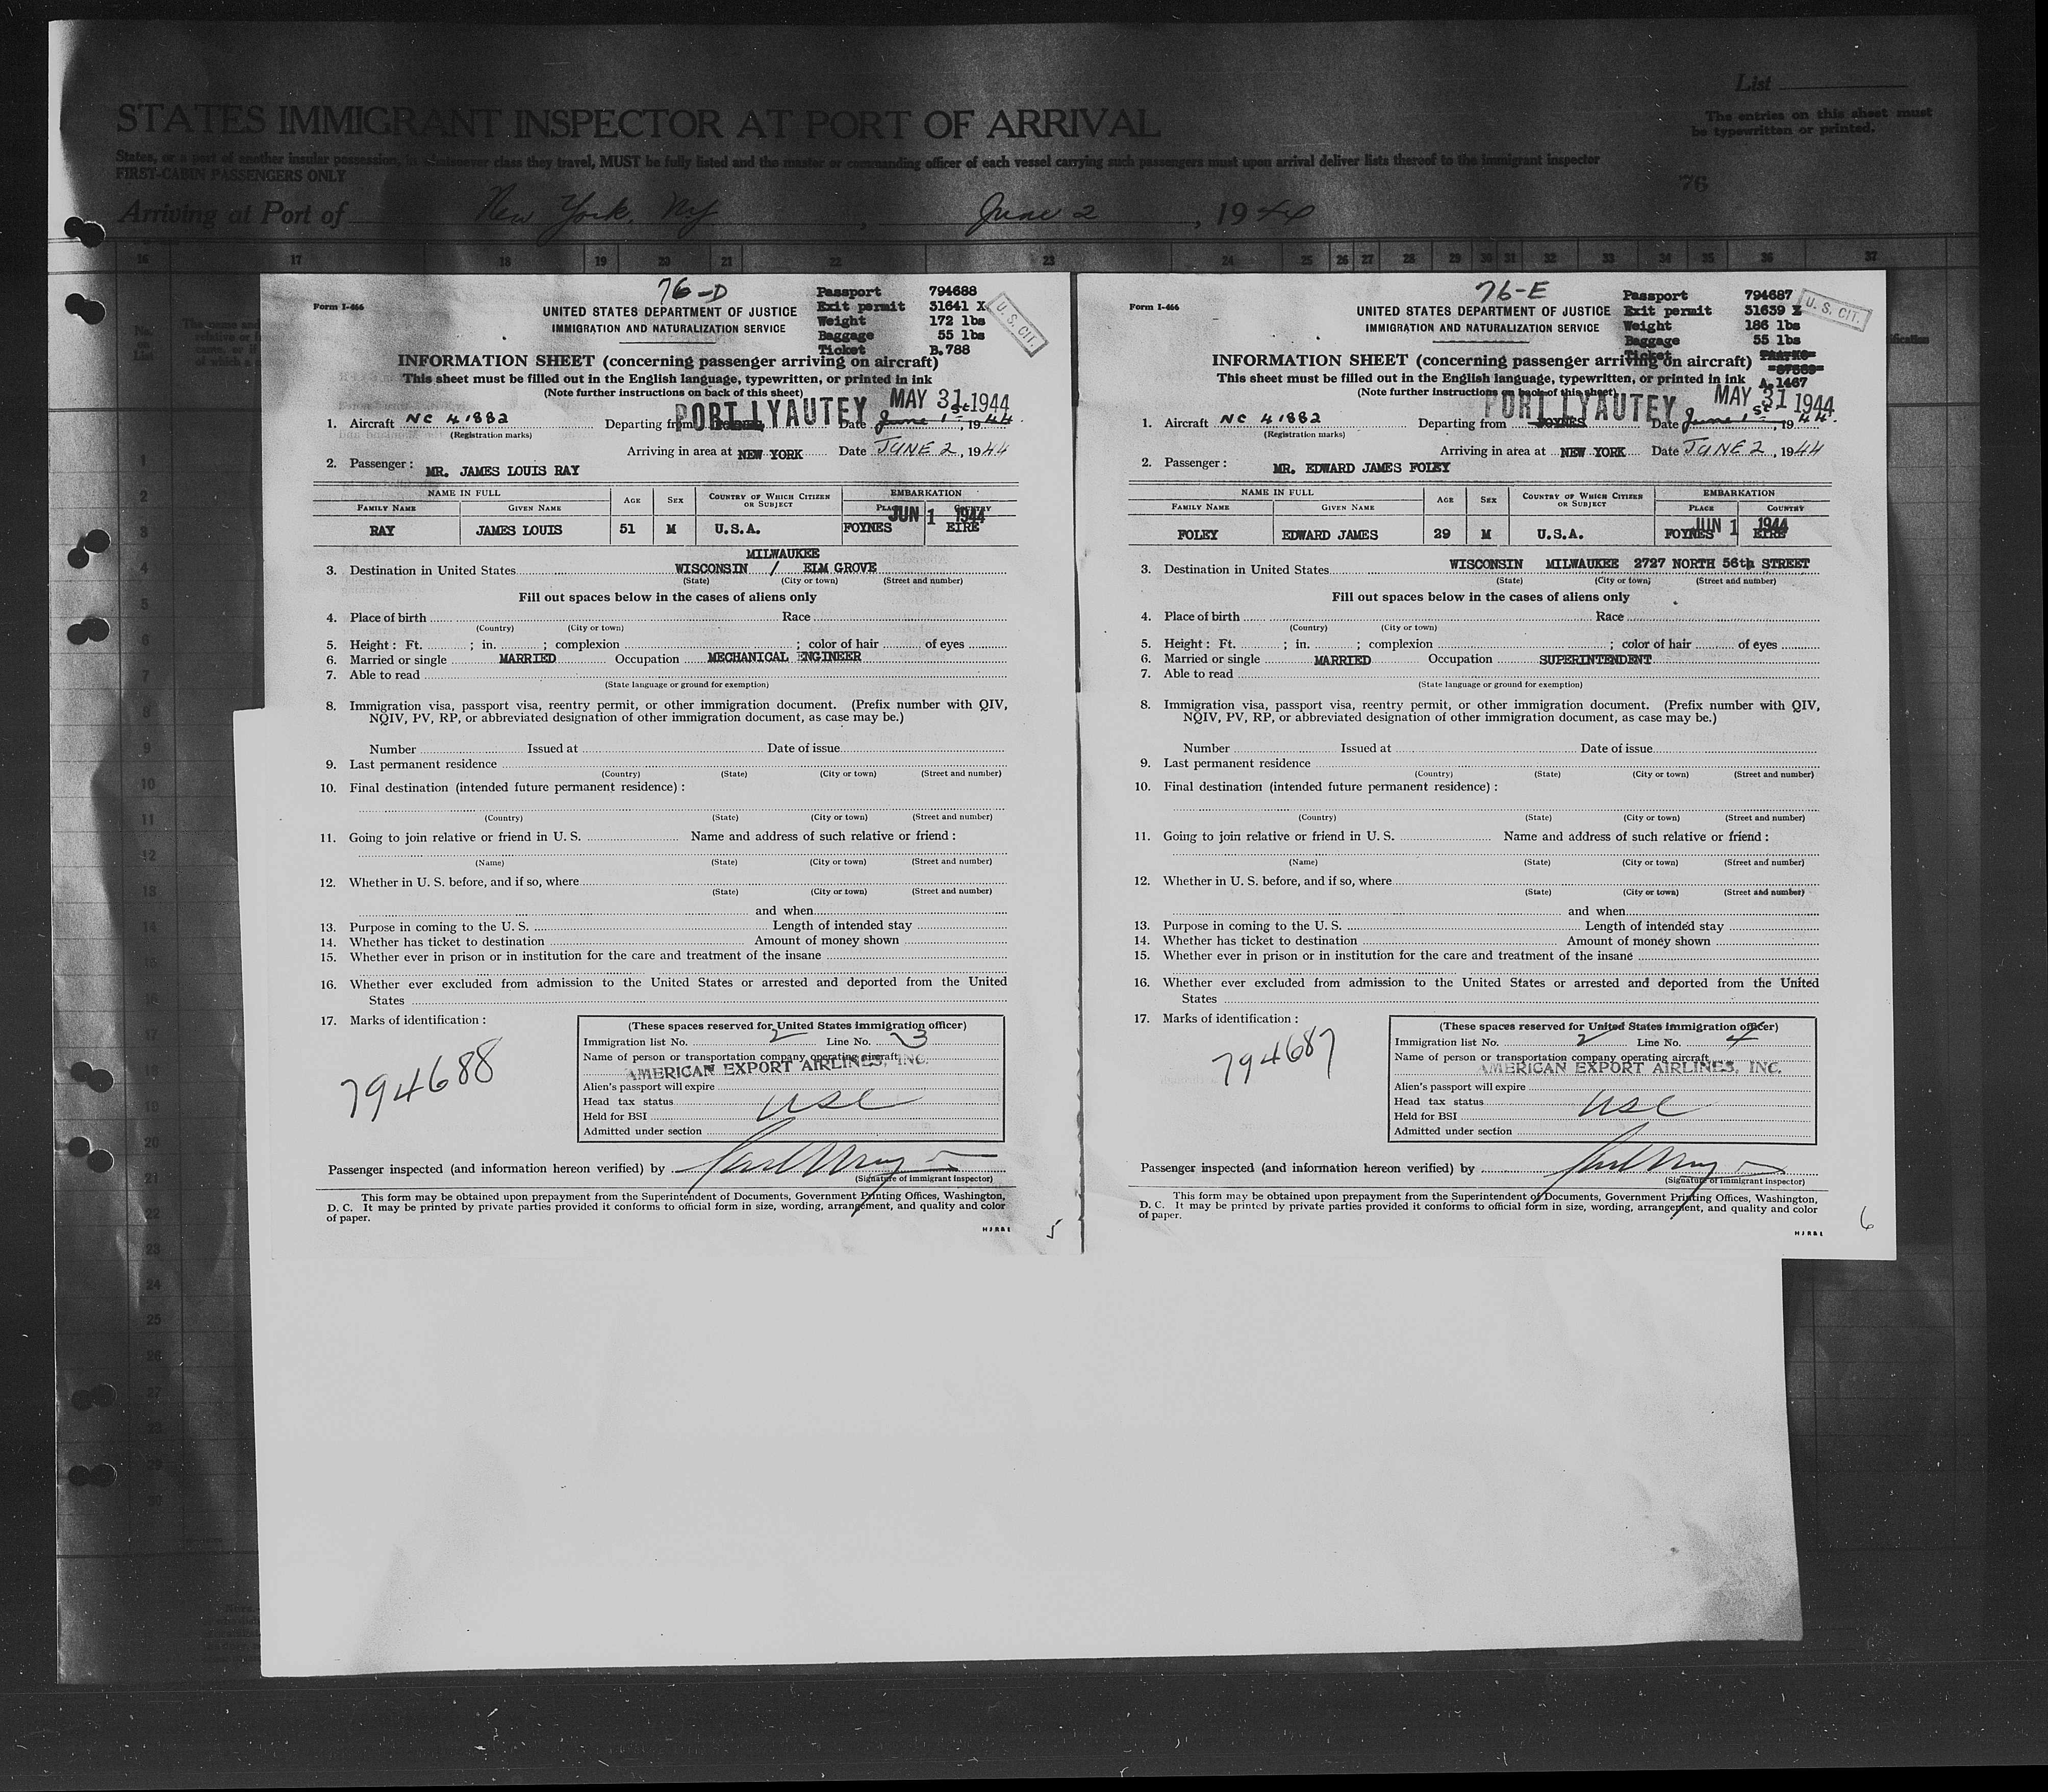 List
STATES IMMIGRANT INSPECTOR AT PORT OF ARRIVAL
The entries on this sheet must
be typewritten or printed.
States, or a port of another insular possession, in whatsoever class they travel, MUST be fully listed and the master or commanding officer of each vessel carrying such passengers must upon arrival deliver lists thereof to the immigrant inspector
FIRST-CABIN PASSENGERS ONLY
76
Arriving at Port of New York, NY, June 2, 1944
16 17 18 19 20 21 22 23 24 25 26 27 28 29 30 31 32 33 34 35 36 37
76-D
Form I-466
Passport 794688
Exit permit 31641 X
Weight 172 lbs
Baggage 55 lbs
Ticket B.788
U. S. CIT.
UNITED STATES DEPARTMENT OF JUSTICE
IMMIGRATION AND NATURALIZATION SERVICE
INFORMATION SHEET (concerning passenger arriving on aircraft)
This sheet must be filled out in the English language, typewritten, or printed in ink
(Note further instructions on back of this sheet)
PORT LYAUTEY MAY 31 1944
1. Aircraft NC 41882 Departing from Date June 1st, 1944
(Registration marks)
Arriving in area at NEW YORK Date JUNE 2, 1944
2. Passenger: MR. JAMES LOUIS RAY
NAME IN FULL AGE SEX COUNTRY OF WHICH CITIZEN OR SUBJECT EMBARKATION
FAMILY NAME GIVEN NAME PLACE COUNTRY
JUN 1 1944
RAY JAMES LOUIS 51 M U.S.A. FOYNES EIRE
MILWAUKEE
3. Destination in United States WISCONSIN / ELM GROVE
(State) (City or town) (Street and number)
Fill out spaces below in the cases of aliens only
4. Place of birth Race
(Country) (City or town)
5. Height: Ft. ; in. ; complexion ; color of hair of eyes
6. Married or single MARRIED Occupation MECHANICAL ENGINEER
7. Able to read
(State language or ground for exemption)
8. Immigration visa, passport visa, reentry permit, or other immigration document. (Prefix number with QIV,
NQIV, PV, RP, or abbreviated designation of other immigration document, as case may be.)
Number Issued at Date of issue
9. Last permanent residence
(Country) (State) (City or town) (Street and number)
10. Final destination (intended future permanent residence):
(Country) (State) (City or town) (Street and number)
11. Going to join relative or friend in U. S. Name and address of such relative or friend:
(Name) (State) (City or town) (Street and number)
12. Whether in U. S. before, and if so, where
(State) (City or town) (Street and number)
and when
13. Purpose in coming to the U. S. Length of intended stay
14. Whether has ticket to destination Amount of money shown
15. Whether ever in prison or in institution for the care and treatment of the insane
16. Whether ever excluded from admission to the United States or arrested and deported from the United
States
17. Marks of identification:
794688
(These spaces reserved for United States immigration officer)
Immigration list No. 2 Line No. 3
Name of person or transportation company operating aircraft
AMERICAN EXPORT AIRLINES, INC.
Alien's passport will expire
Head tax status USC
Held for BSI
Admitted under section
Passenger inspected (and information hereon verified) by
(Signature of immigrant inspector)
This form may be obtained upon prepayment from the Superintendent of Documents, Government Printing Offices, Washington,
D. C. It may be printed by private parties provided it conforms to official form in size, wording, arrangement, and quality and color
of paper.
5
76-E
Form I-466
Passport 794687
Exit permit 31639 X
Weight 186 lbs
Baggage 55 lbs
Ticket
A.1467
U. S. CIT.
UNITED STATES DEPARTMENT OF JUSTICE
IMMIGRATION AND NATURALIZATION SERVICE
INFORMATION SHEET (concerning passenger arriving on aircraft)
This sheet must be filled out in the English language, typewritten, or printed in ink
(Note further instructions on back of this sheet)
PORT LYAUTEY MAY 31 1944
1. Aircraft NC 41882 Departing from FOYNES Date June 1st, 1944.
(Registration marks)
Arriving in area at NEW YORK Date JUNE 2, 1944
2. Passenger: MR. EDWARD JAMES FOLEY
NAME IN FULL AGE SEX COUNTRY OF WHICH CITIZEN OR SUBJECT EMBARKATION
FAMILY NAME GIVEN NAME PLACE COUNTRY
JUN 1 1944
FOLEY EDWARD JAMES 29 M U.S.A. FOYNES EIRE
3. Destination in United States WISCONSIN MILWAUKEE 2727 NORTH 56th STREET
(State) (City or town) (Street and number)
Fill out spaces below in the cases of aliens only
4. Place of birth Race
(Country) (City or town)
5. Height: Ft. ; in. ; complexion ; color of hair of eyes
6. Married or single MARRIED Occupation SUPERINTENDENT
7. Able to read
(State language or ground for exemption)
8. Immigration visa, passport visa, reentry permit, or other immigration document. (Prefix number with QIV,
NQIV, PV, RP, or abbreviated designation of other immigration document, as case may be.)
Number Issued at Date of issue
9. Last permanent residence
(Country) (State) (City or town) (Street and number)
10. Final destination (intended future permanent residence):
(Country) (State) (City or town) (Street and number)
11. Going to join relative or friend in U. S. Name and address of such relative or friend:
(Name) (State) (City or town) (Street and number)
12. Whether in U. S. before, and if so, where
(State) (City or town) (Street and number)
and when
13. Purpose in coming to the U. S. Length of intended stay
14. Whether has ticket to destination Amount of money shown
15. Whether ever in prison or in institution for the care and treatment of the insane
16. Whether ever excluded from admission to the United States or arrested and deported from the United
States
17. Marks of identification:
794687
(These spaces reserved for United States immigration officer)
Immigration list No. 2 Line No. 4
Name of person or transportation company operating aircraft
AMERICAN EXPORT AIRLINES, INC.
Alien's passport will expire
Head tax status USC
Held for BSI
Admitted under section
Passenger inspected (and information hereon verified) by
(Signature of immigrant inspector)
This form may be obtained upon prepayment from the Superintendent of Documents, Government Printing Offices, Washington,
D. C. It may be printed by private parties provided it conforms to official form in size, wording, arrangement, and quality and color
of paper.
6